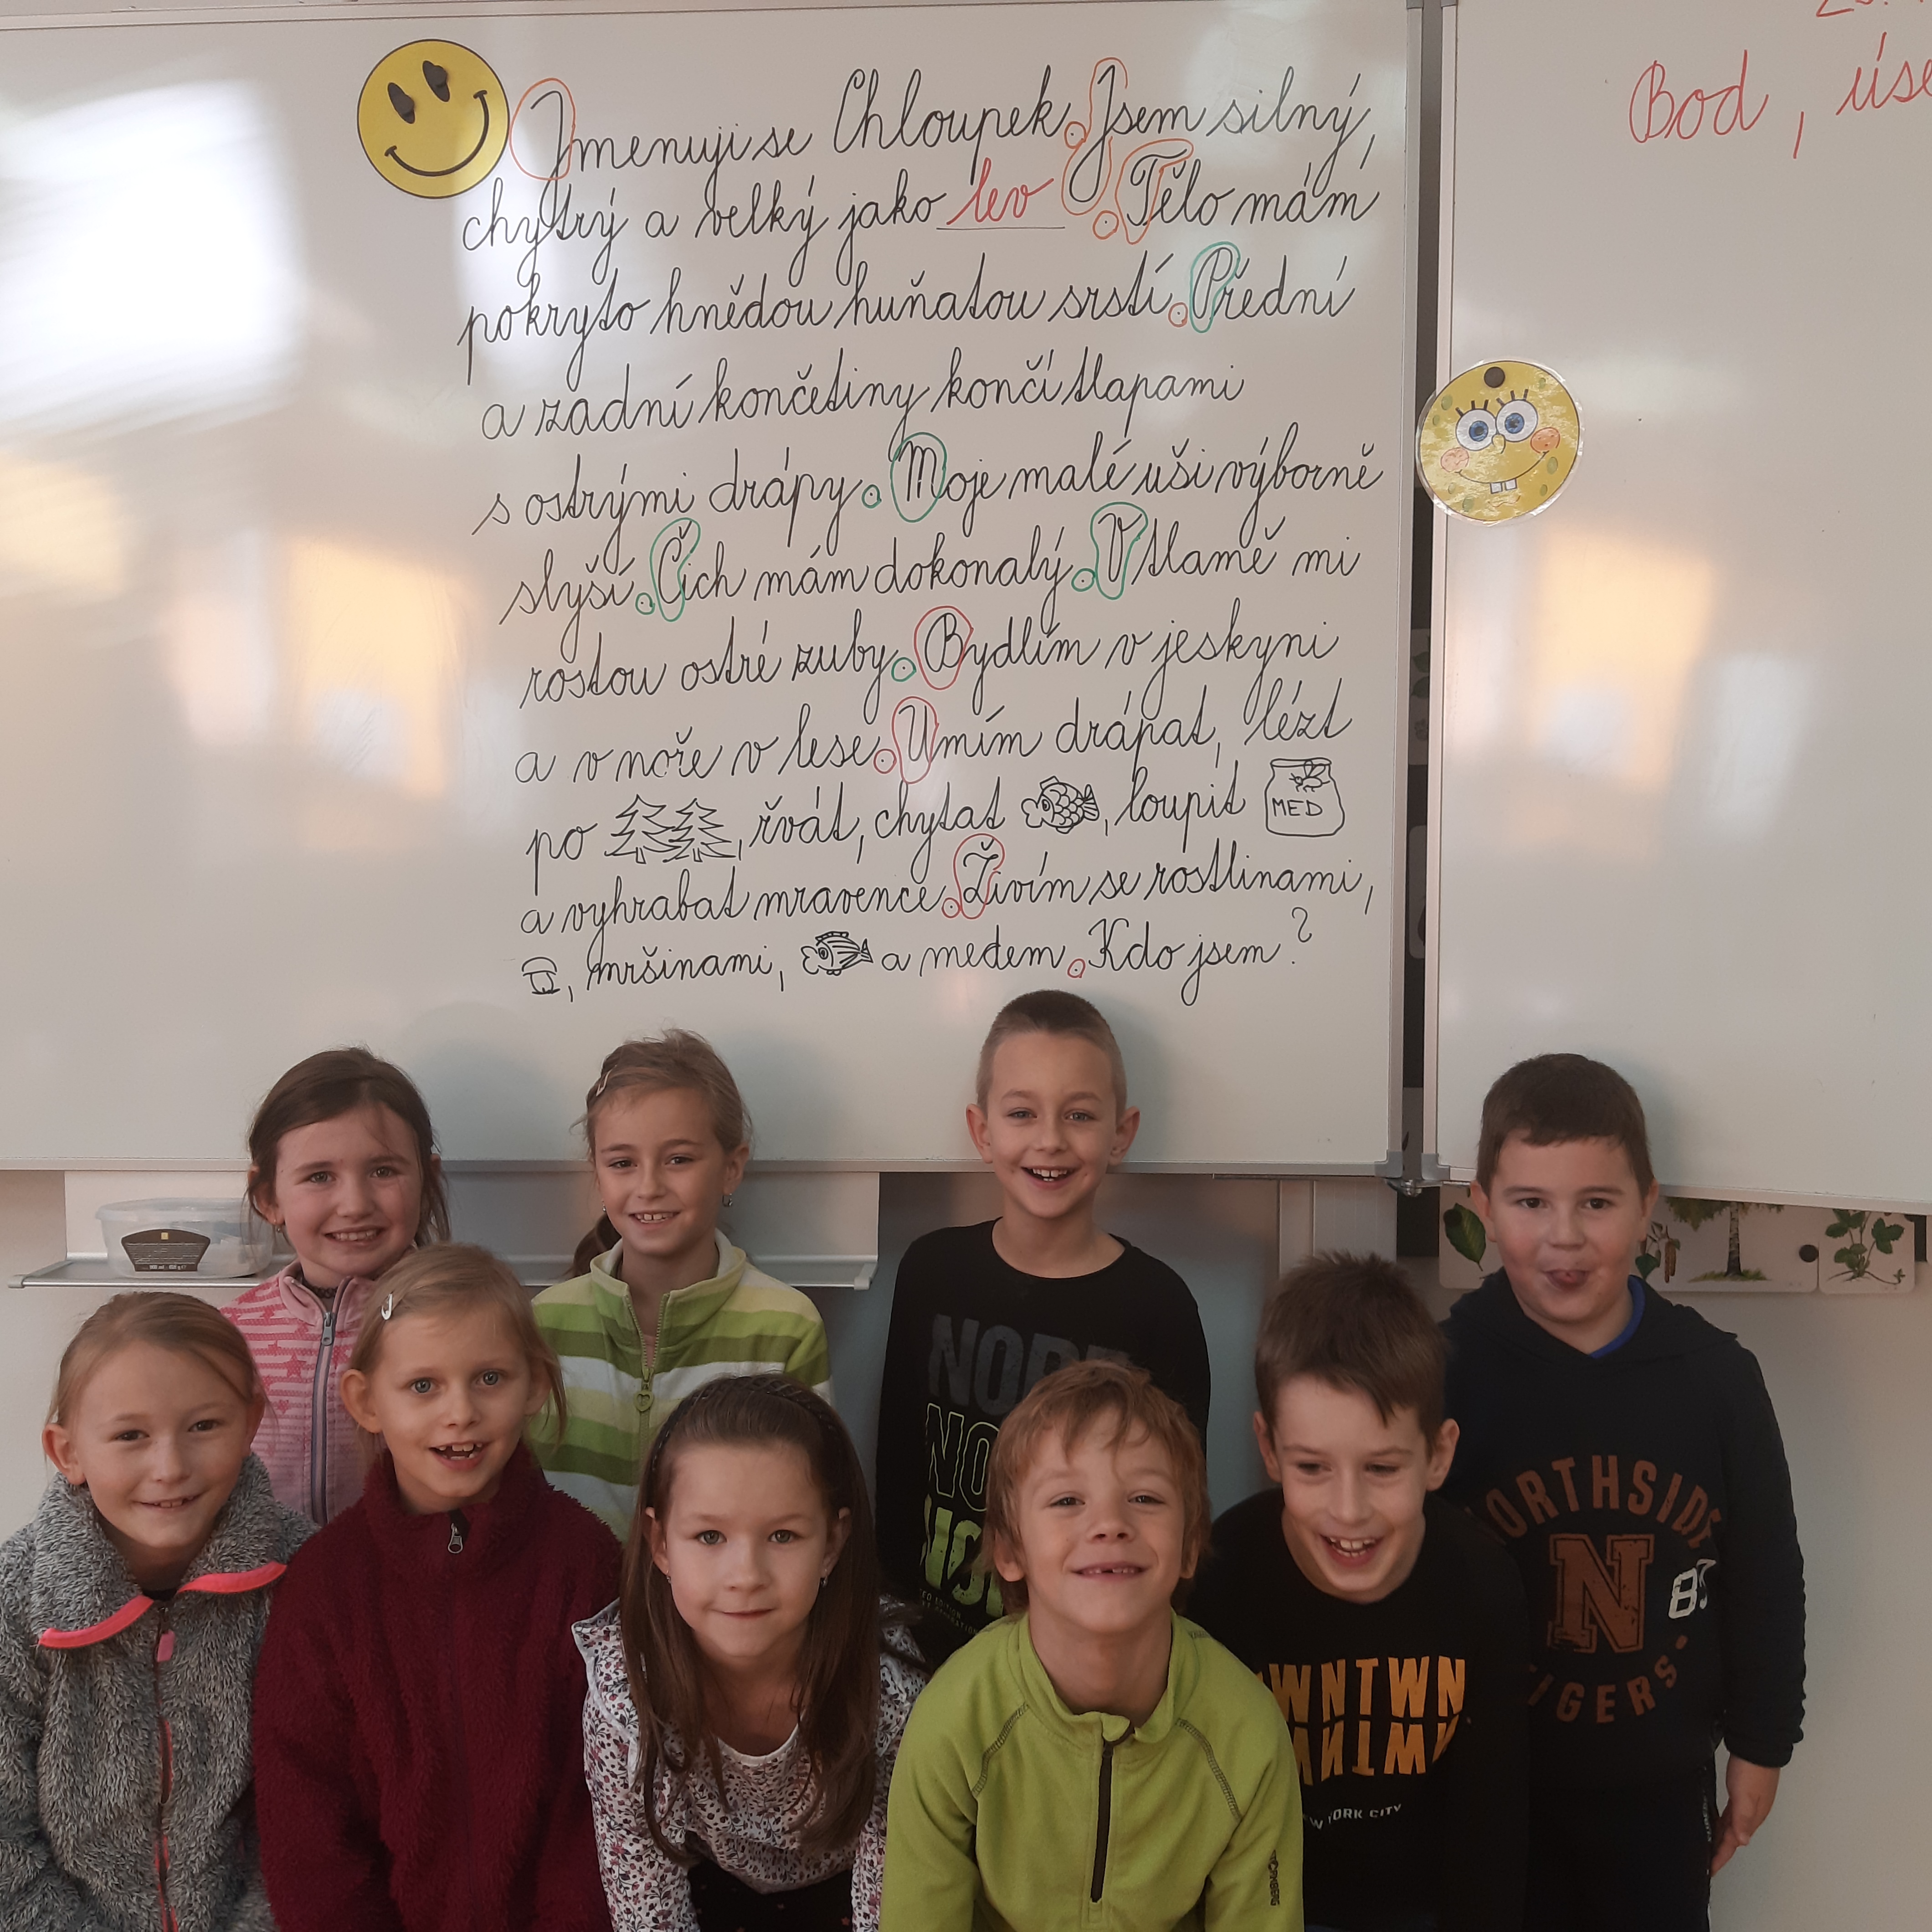 Jmenuji se Chloupek. Jsem silný,
chytrý a velký jako lev. Tělo mám
pokryto hnědou huňatou srstí. Přední
a zadní končetiny končí tlapami
s ostrými drápy. Moje malé uši výborně
slyší. Čich mám dokonalý. V tlamě mi
rostou ostré zuby. Bydlím v jeskyni
a v noře v lese. Umím drápat, lézt
po , řvát, chytat , loupit MED
a vyhrabat mravence. Živím se rostlinami,
, mršinami, a medem. Kdo jsem?
Bod, úse
NO
NO
ORTHSIDE
N
87
TIGERS
WNTWN
W YORK CITY